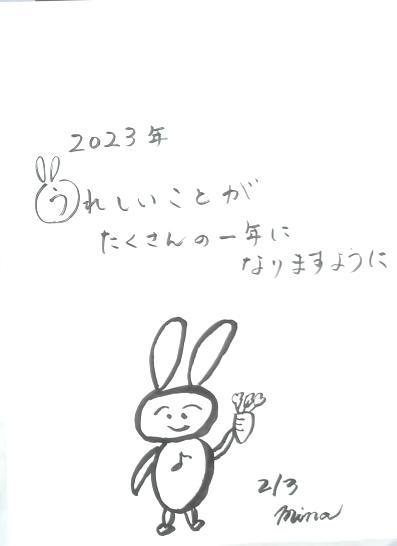 2023年
うれしいことが
たくさんの一年に
なりますように
2/3
mina